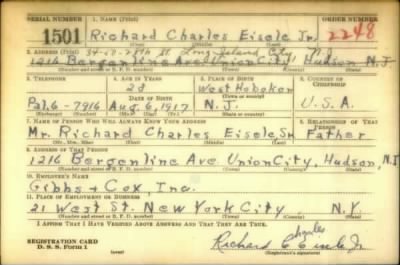 SERIAL NUMBER 1. NAME (Print) ORDER NUMBER
1501 Richard Charles Eisele Jr. 2248
(First) (Middle) (Last)
2. ADDRESS (Print) 34-57-28th St. Long Island City N.Y.
1216 Bergenline Ave Union City, Hudson N.J
(Number and street or R. F. D. number) (Town) (County) (State)
3. TELEPHONE 4. AGE IN YEARS 5. PLACE OF BIRTH 6. COUNTRY OF CITIZENSHIP
23 West Hoboken
DATE OF BIRTH (Town or county)
Pal. 6-7916 Aug. 6, 1917 N.J. U.S.A.
(Exchange) (Number) (Mo.) (Day) (Yr.) (State or country)
7. NAME OF PERSON WHO WILL ALWAYS KNOW YOUR ADDRESS 8. RELATIONSHIP OF THAT PERSON
Mr. Richard Charles Eisele, Sr. Father
(Mr., Mrs., Miss) (First) (Middle) (Last)
9. ADDRESS OF THAT PERSON
1216 Bergenline Ave. Union City, Hudson, N.J
(Number and street or R. F. D. number) (Town) (County) (State)
10. EMPLOYER'S NAME
Gibbs + Cox, Inc.
11. PLACE OF EMPLOYMENT OR BUSINESS
21 West St. New York City N.Y.
(Number and street or R. F. D. number) (Town) (County) (State)
I AFFIRM THAT I HAVE VERIFIED ABOVE ANSWERS AND THAT THEY ARE TRUE.
Charles
REGISTRATION CARD Richard C Eisele Jr
D. S. S. Form 1 (over) (Registrant's signature)